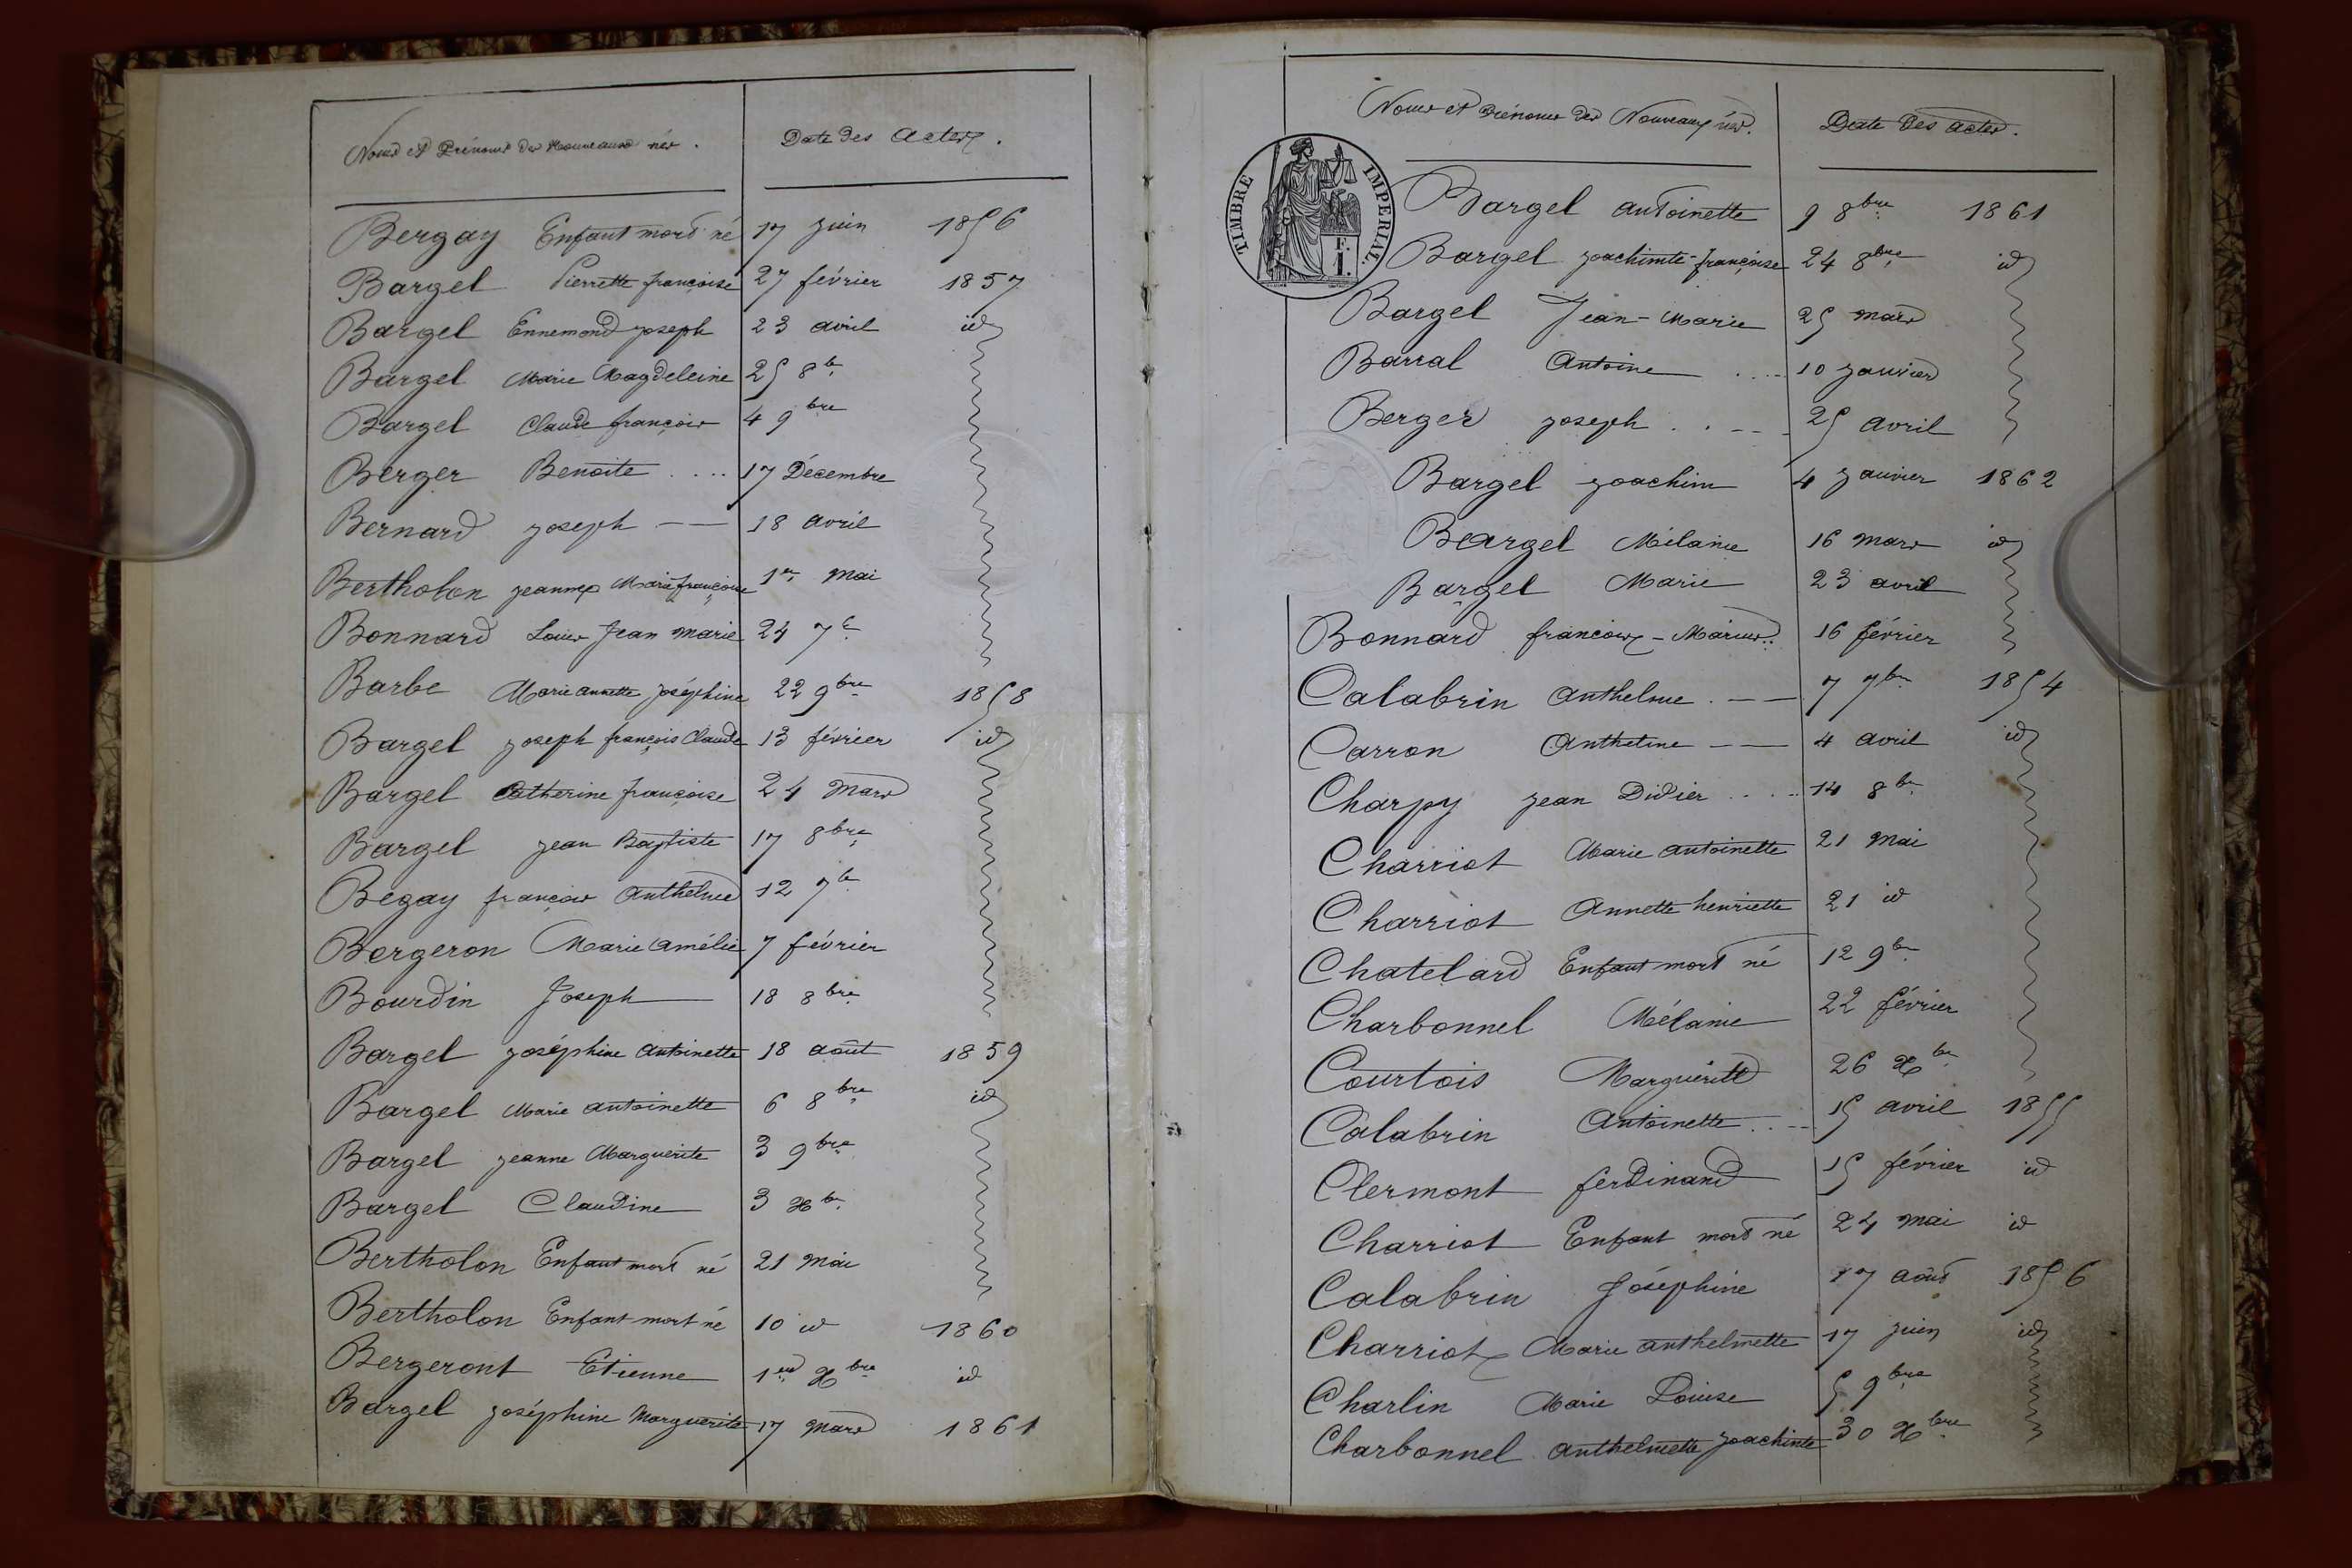 Noms et Prénoms des Nouveaux nés. Date des Actes.
Bergay Enfant mort né 17 juin 1856
Bargel Pierrette françoise 27 février 1857
Bargel Ennemond joseph 23 avril id
Bargel Marie Magdeleine 25 8b.
Bargel Claude françois 4 9bre
Berger Benoite .... 17 Décembre
Bernard joseph —— 18 avril
Bertholon jeanne Marie françoise 1er Mai
Bonnard Louis Jean Marie 24 7b.
Barbe Marie annette joséphine 22 9bre 1858
Bargel joseph françois Claude 13 février id
Bargel Catherine françoise 24 Mars
Bargel jean Baptiste 17 8bre
Begay françois Anthelme 12 7b.
Bergeron Marie Amélie 7 février
Bourdin Joseph — 18 8bre
Bargel joséphine Antoinette 18 août 1859
Bargel Marie antoinette 6 8bre id
Bargel jeanne Marguerite 3 9bre
Bargel Claudine 3 Xbr.
Bertholon Enfant mort né 21 Mai
Bertholon Enfant mort né 10 id 1860
Bergeront Etienne 1er Xbre id
Bargel joséphine Marguerite 17 Mars 1861
Noms et Prénoms des Nouveaux nés. Date des actes.
TIMBRE IMPERIAL.
F.
1.
Bargel antoinette 9 8bre 1861
Bargel joachimte-françoise 24 8bre id
Bargel Jean-Marie 25 mars
Barral Antoine .... 10 janvier
Berger joseph . . -- 25 avril
Bargel joachim 4 janvier 1862
Bargel Mélanie 16 mars id
Bargel Marie 23 avril
Bonnard françois-Marius.. 16 février
Calabrin Anthelme . —— 7 7br 1854
Carron Anthelme —— 4 avril id
Charpy jean Didier .... 14 8br
Charriot Marie antoinette 21 Mai
Charriot Annette henriette 21 id
Chatelard Enfant mort né 12 9br
Charbonnel Mélanie 22 février
Courtois Marguerite 26 Xbr
Calabrin Antoinette .. -- 15 avril 1855
Clermont ferdinand 15 février id
Charriot Enfant mort né 24 mai id
Calabrin Joséphine 17 août 1856
Charriot Marie anthelmette 17 juin id
Charlin Marie Louise 5 9bre
Charbonnel anthelmette joachimte 30 Xbre